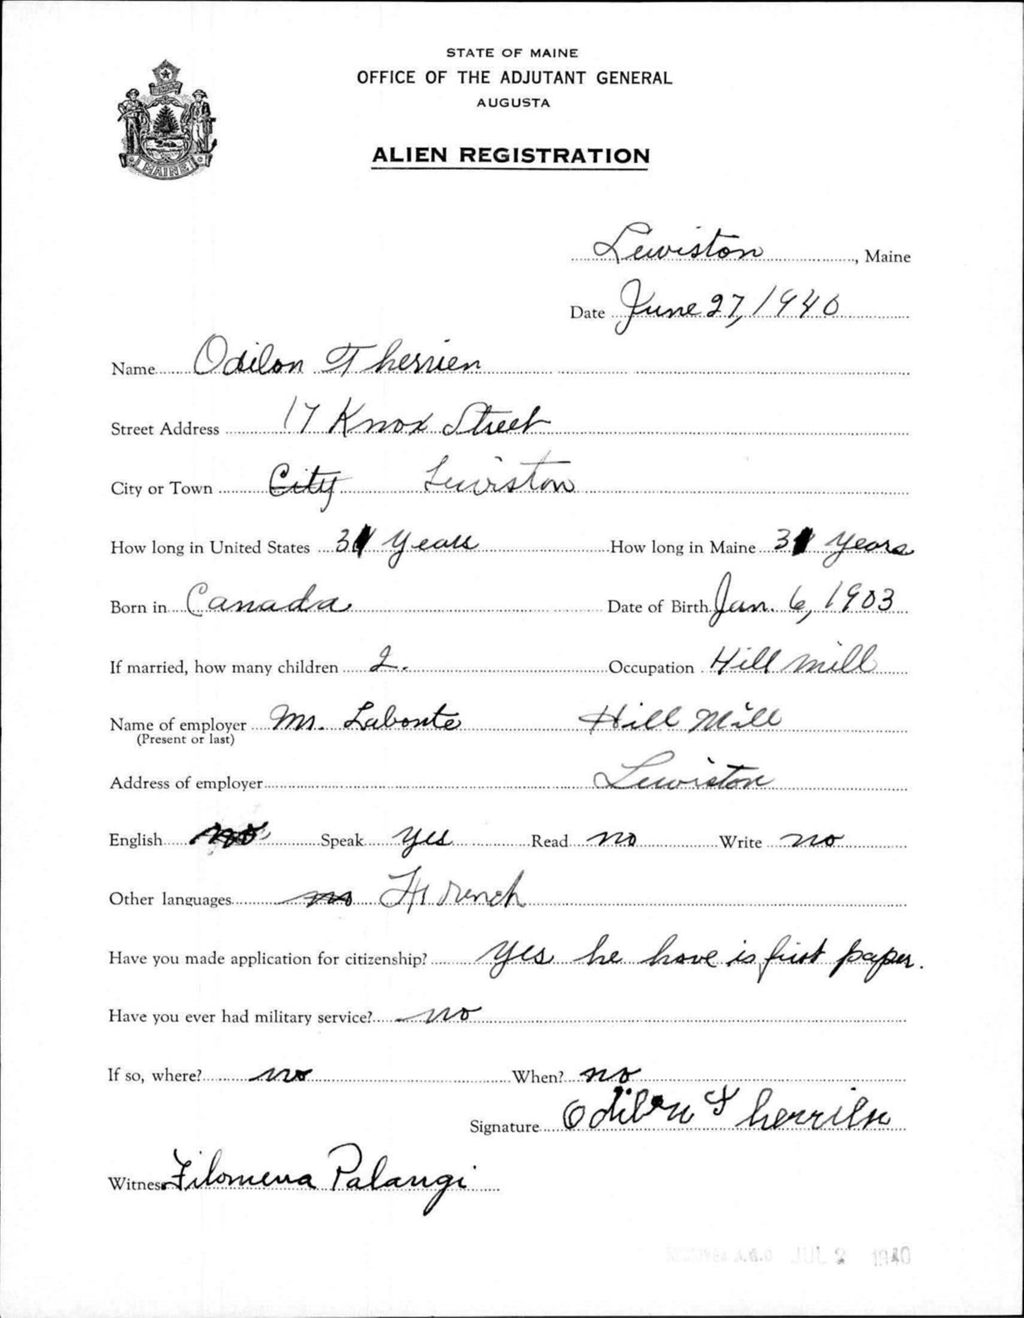 STATE OF MAINE
OFFICE OF THE ADJUTANT GENERAL
AUGUSTA
ALIEN REGISTRATION
MAINE
Lewiston, Maine
Date June 27, 1940
Name Odilon Therrien
Street Address 17 Knox Street
City or Town City Lewiston
How long in United States 31 Years How long in Maine 31 Years
Born in Canada Date of Birth Jan. 6, 1903
If married, how many children 2. Occupation Hill Mill
Name of employer Mr. Labonte Hill Mill
(Present or last)
Address of employer Lewiston
English no Speak yes Read no Write no
Other languages no French
Have you made application for citizenship? yes he have is first paper.
Have you ever had military service? no
If so, where? no When? no
Signature Odilon Therrien
Witness Filomena Palangi
A.G.O JUL 2 1940